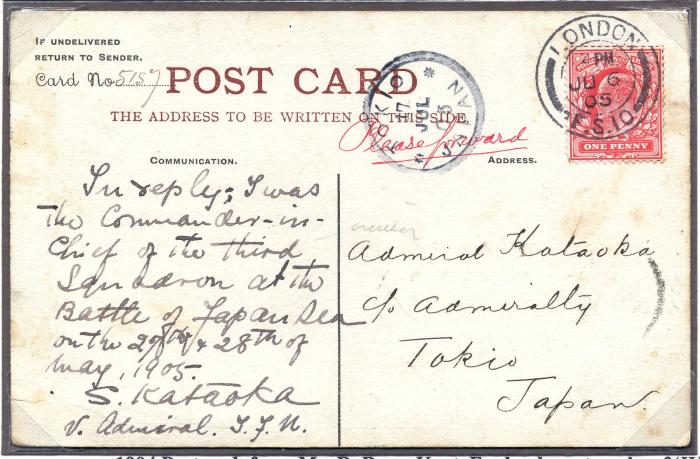 IF UNDELIVERED
RETURN TO SENDER.
Card No 5157
POST CARD
THE ADDRESS TO BE WRITTEN ON THIS SIDE.
Please forward
COMMUNICATION.
ADDRESS.
In reply; I was
the Commander-in-
Chief of the third
Squadron at the
Battle of Japan Sea
on the 27th & 28th of
May, 1905.
S. Kataoka
V. Admiral. I.J.N.
Admiral Kataoka
c/o Admiralty
Tokio
Japan.
LONDON
2 PM
6
05
F.S.10
ONE PENNY
TOKIO
17
JUL
05
JAPAN